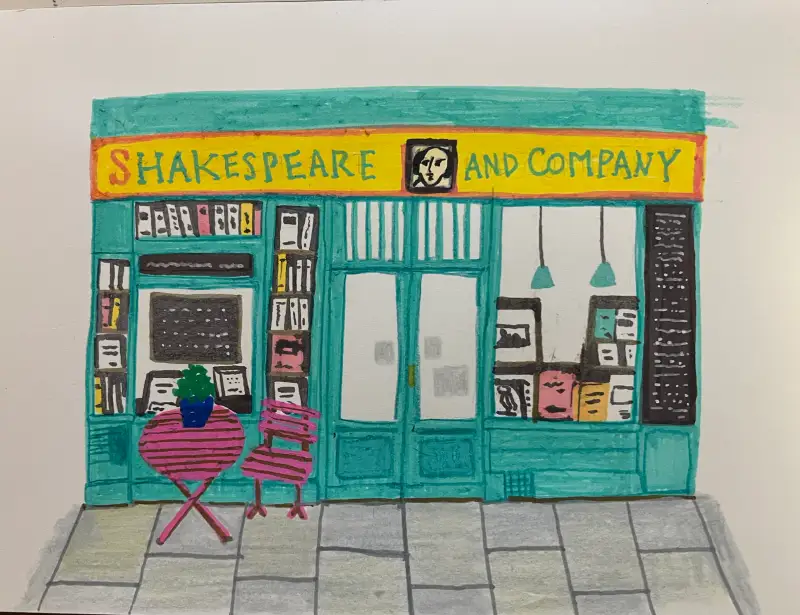 SHAKESPEARE AND COMPANY